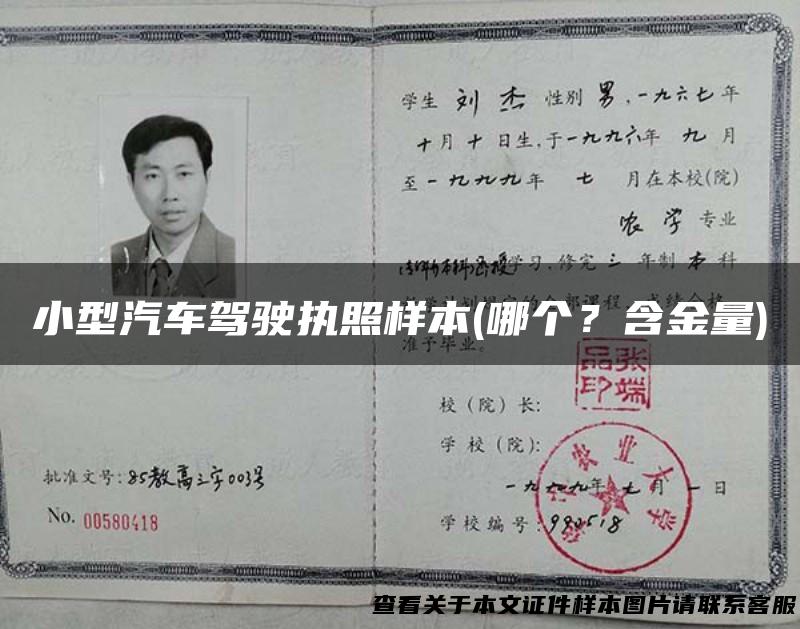 学生 刘杰 性别 男，一九六七年
十月十日生，于一九九六年 九 月
至一九九九年 七 月在本校(院)
农学专业
学习，修完三年制本科
小型汽车驾驶执照样本(哪个？含金量)
准予毕业。
张端品印
校（院）长：
学 校（院）：
农业大学
一九九九年七月一日
学校编号：980518
批准文号：85教高三字003号
No. 00580418
查看关于本文证件样本图片请联系客服